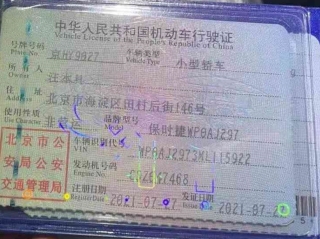 中华人民共和国机动车行驶证
Vehicle License of the People's Republic of China
号牌号码 车辆类型 小型轿车
Plate No. Vehicle Type
所有人
Owner
住址 北京市海淀区田村后街146号
Address
使用性质 非营运 品牌型号 保时捷WP0AJ297
Use Character Model
车辆识别代号 WP0AJ2973KL115922
VIN
北京市公安局公安交通管理局
发动机号码
Engine No.
注册日期 2021-07-27 发证日期 2021-07-27
Register Date Issue Date